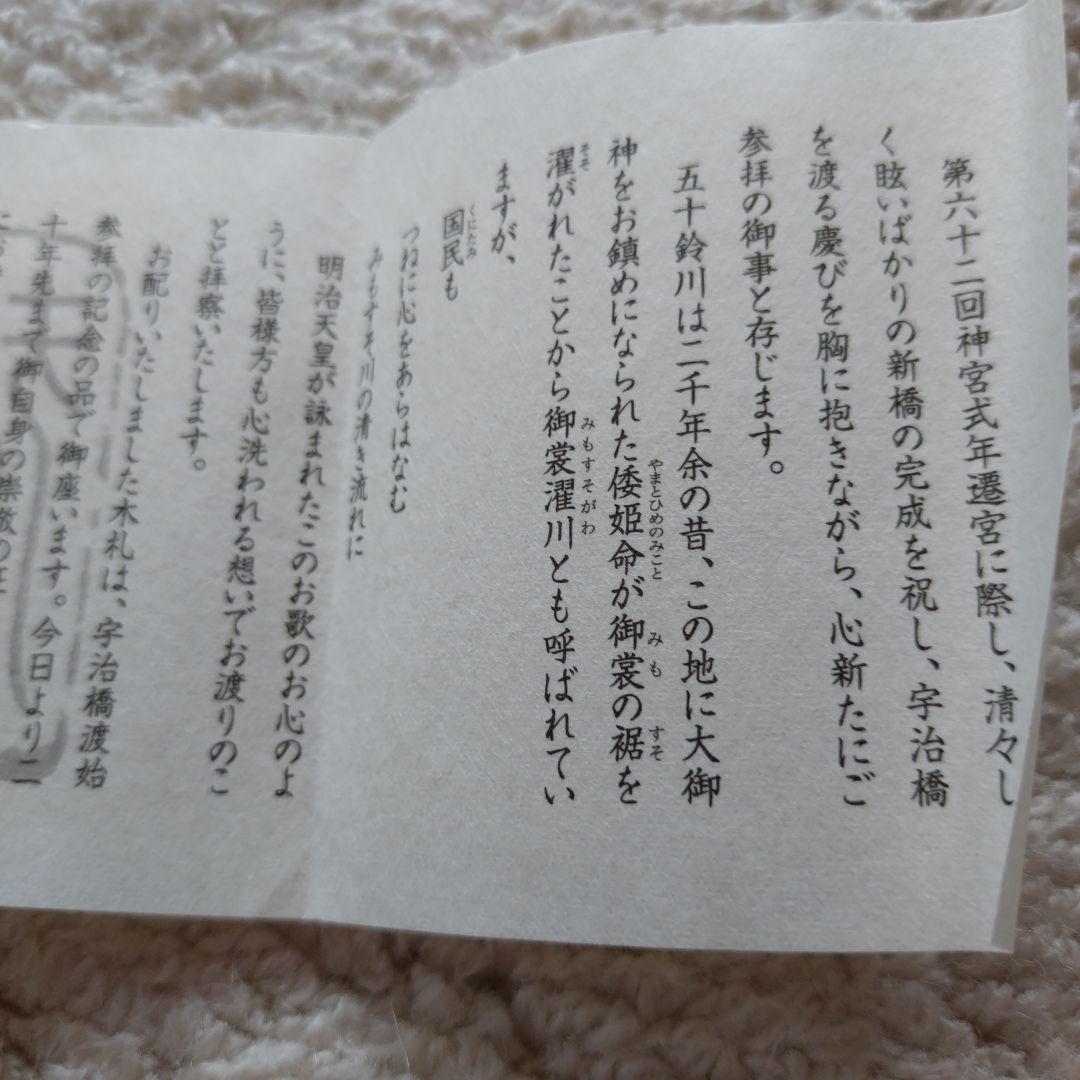 第六十二回神宮式年遷宮に際し、清々し
く眩いばかりの新橋の完成を祝し、宇治橋
を渡る慶びを胸に抱きながら、心新たにご
参拝の御事と存じます。
五十鈴川は二千年余の昔、この地に大御
神をお鎮めになられた倭姫命が御裳の裾を
やまとひめのみこと みも すそ
濯がれたことから御裳濯川とも呼ばれてい
そそ みもすそがわ
ますが、
国民も
くにたみ
つねに心をあらはなむ
みもすそ川の清き流れに
明治天皇が詠まれたこのお歌のお心のよ
うに、皆様方も心洗われる想いでお渡りのこ
とと拝察いたします。
お配りいたしました木札は、宇治橋渡始
参拝の記念の品で御座います。今日より二
十年先まで御自身の崇敬の